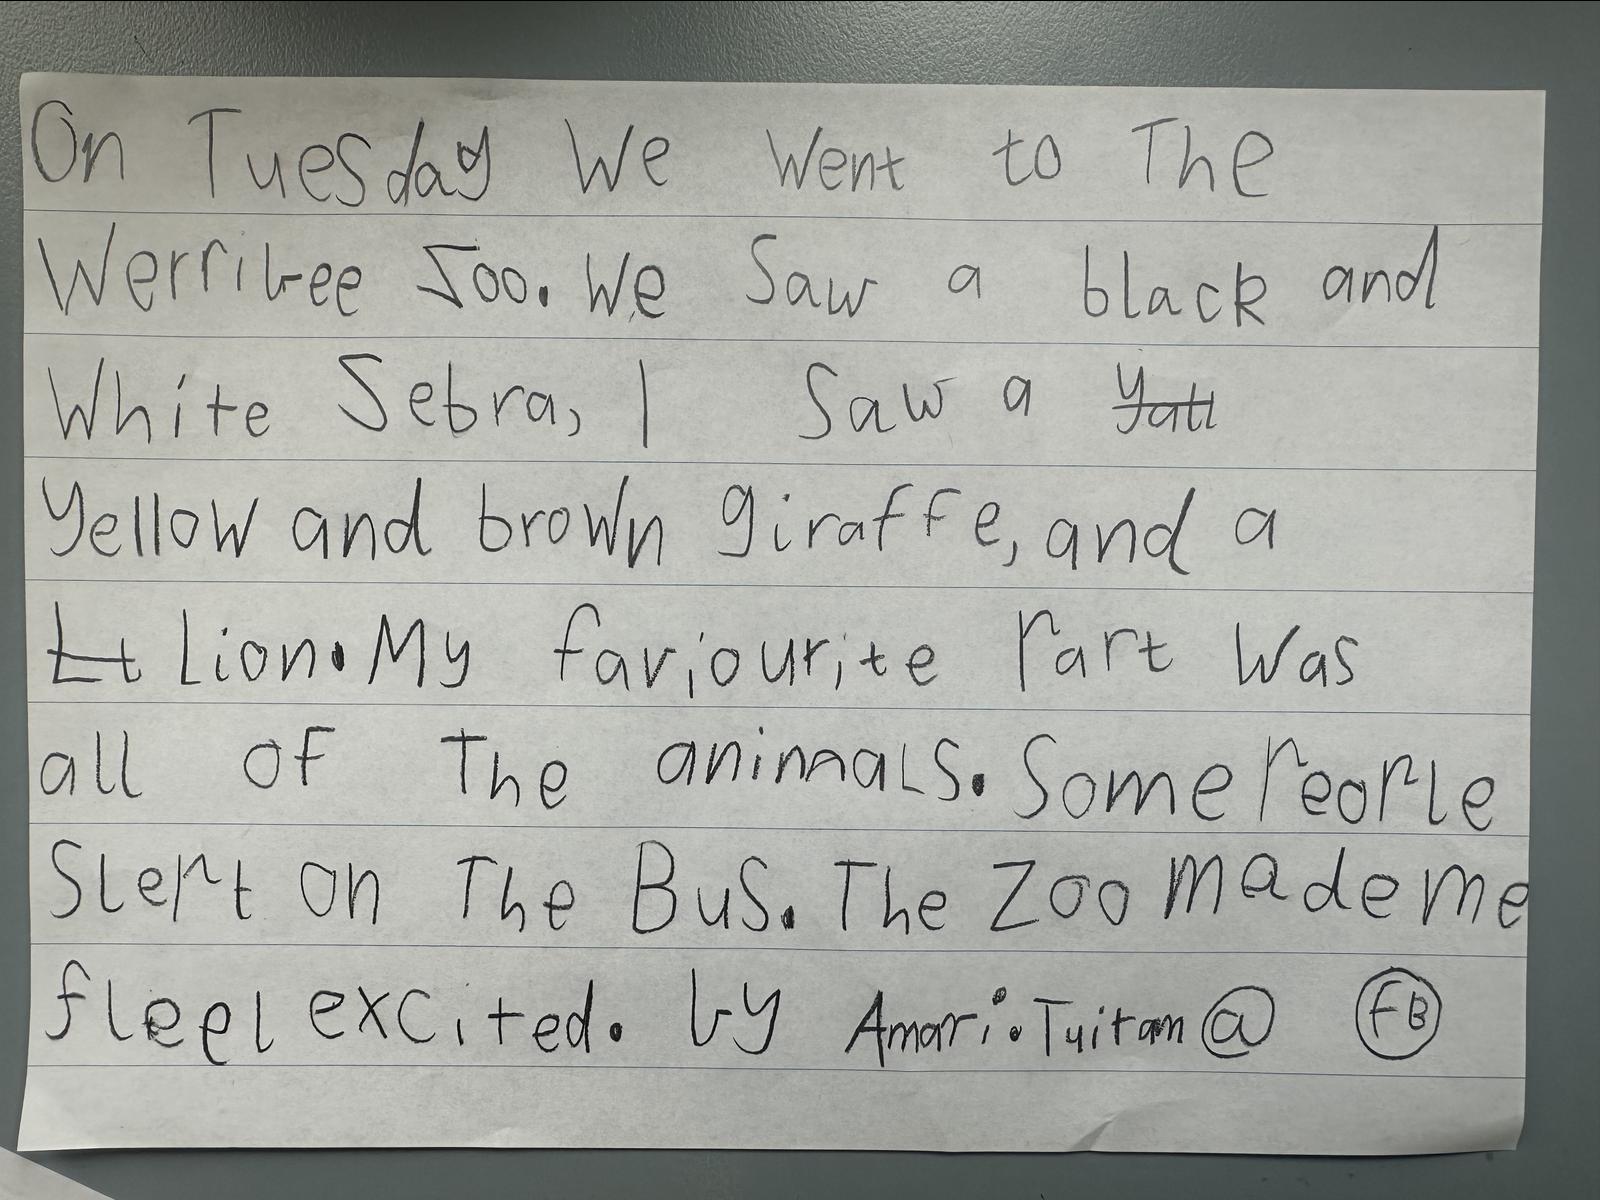 On Tuesday We Went to The
Werribee Soo. We Saw a black and
White Sebra, I Saw a yatl
yellow and brown giraffe, and a
Lt Lion. My faviourite Part Was
all of The animals. Some People
Slept on The Bus. The Zoo made me
fleel excited. by Amari. Tuitam @ FB